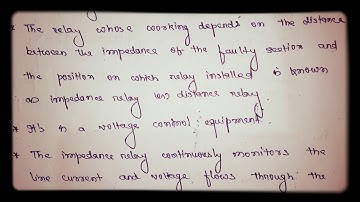 * The relay whose working depends on the distance
between the impedance of the faulty section and
the position on which relay installed is known
as impedance relay (or) distance relay.
* It's is a voltage control equipment.
* The impedance relay continuously monitors the
line current and voltage flows through the